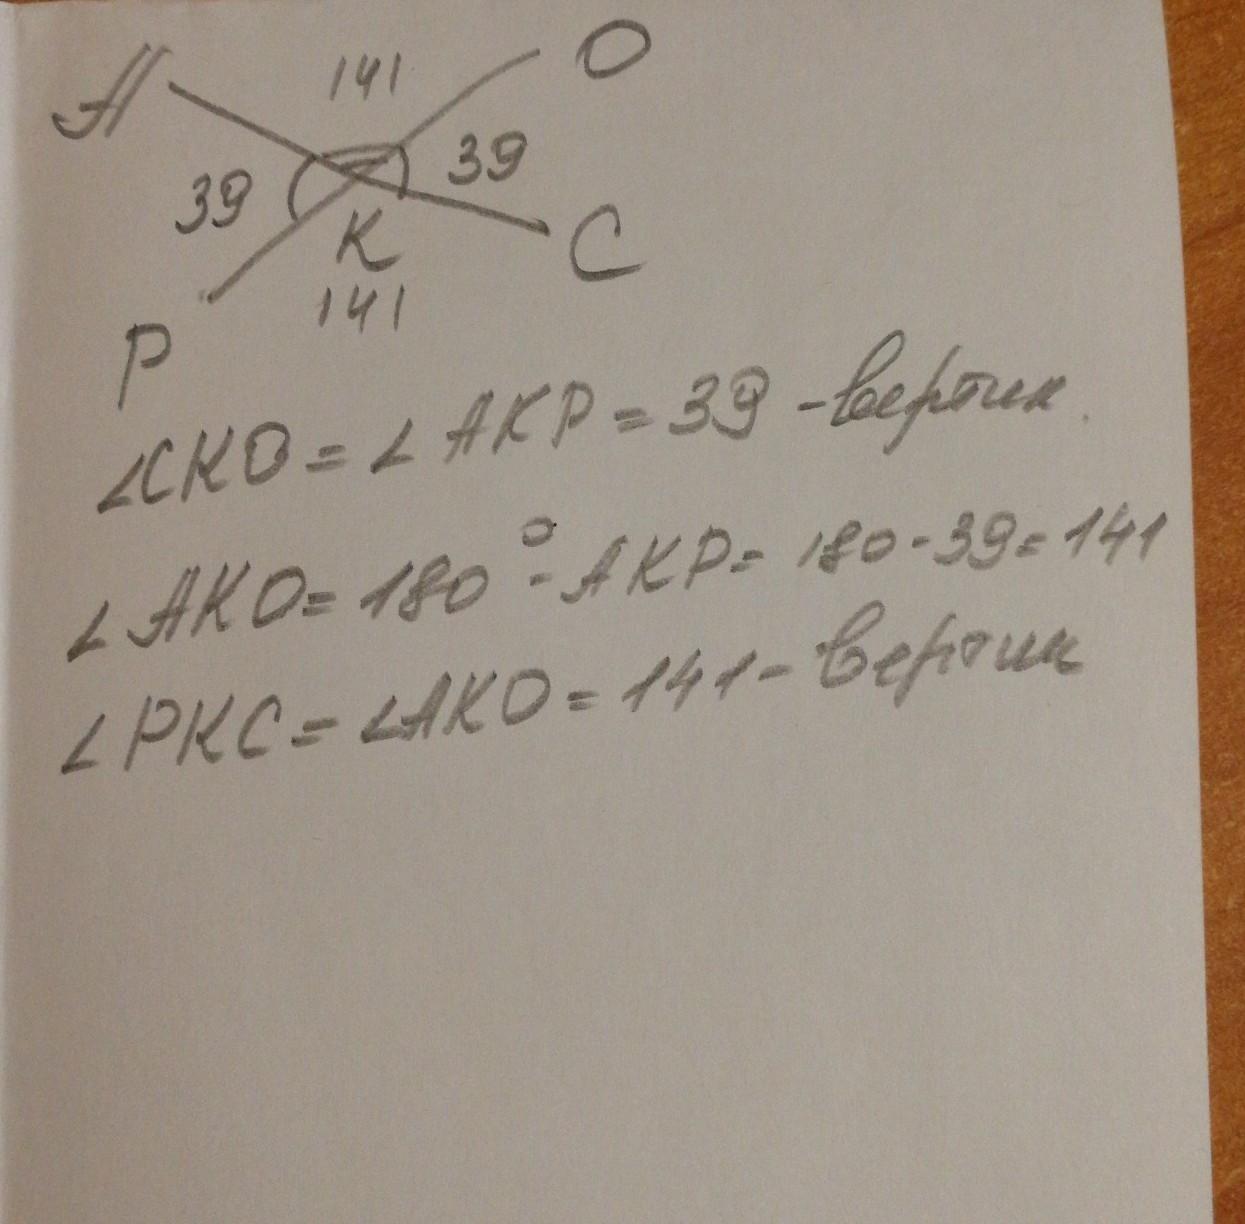 A 141 O
39 39
K C
141
P
∠CKO = ∠AKP = 39 - вертик.
∠AKO = 180° - AKP = 180 - 39 = 141
∠PKC = ∠AKO = 141 - вертик